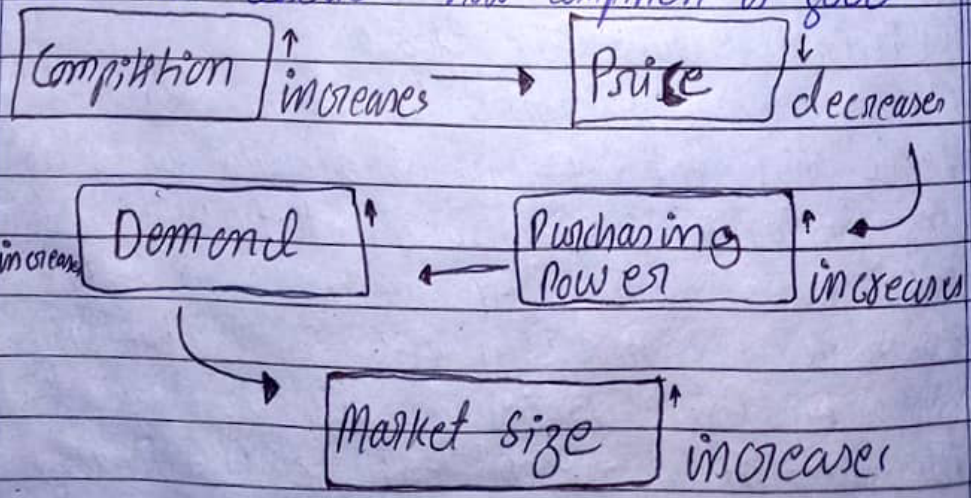 Compitition ↑ increases → Price ↓ decreases
increases Demand ↑ ← Purchasing power ↑ increases
Market size ↑ increases